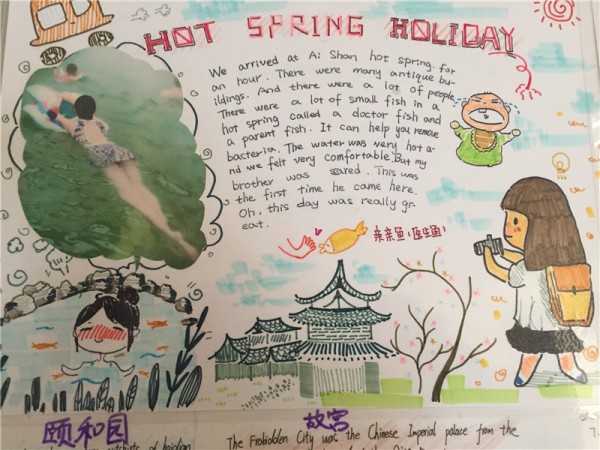 HOT SPRING HOLIDAY
We arrived at Ai Shan hot spring for
an hour. There were many antique bu-
ildings. And there were a lot of people.
There were a lot of small fish in a
hot spring called a doctor fish and
a parent fish. It can help you remove
bacteria. The water was very hot a-
nd we felt very comfortable. But my
brother was scared. This was
the first time he came here.
Oh, this day was really gr-
eat.
亲亲鱼
医生鱼!
颐和园
故宫
The Frobidden City was the Chinese Imperial palace from the